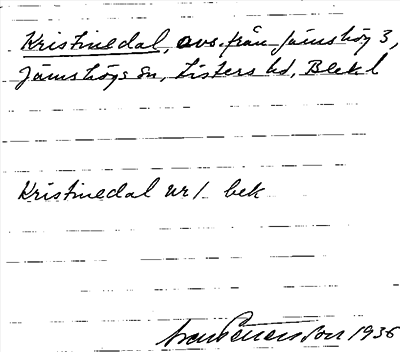 Kristinedal, avs. från Jämshög 3,
Jämshögs sn, Listers hd, Blek l
Kristinedal nr 1 bek
1936